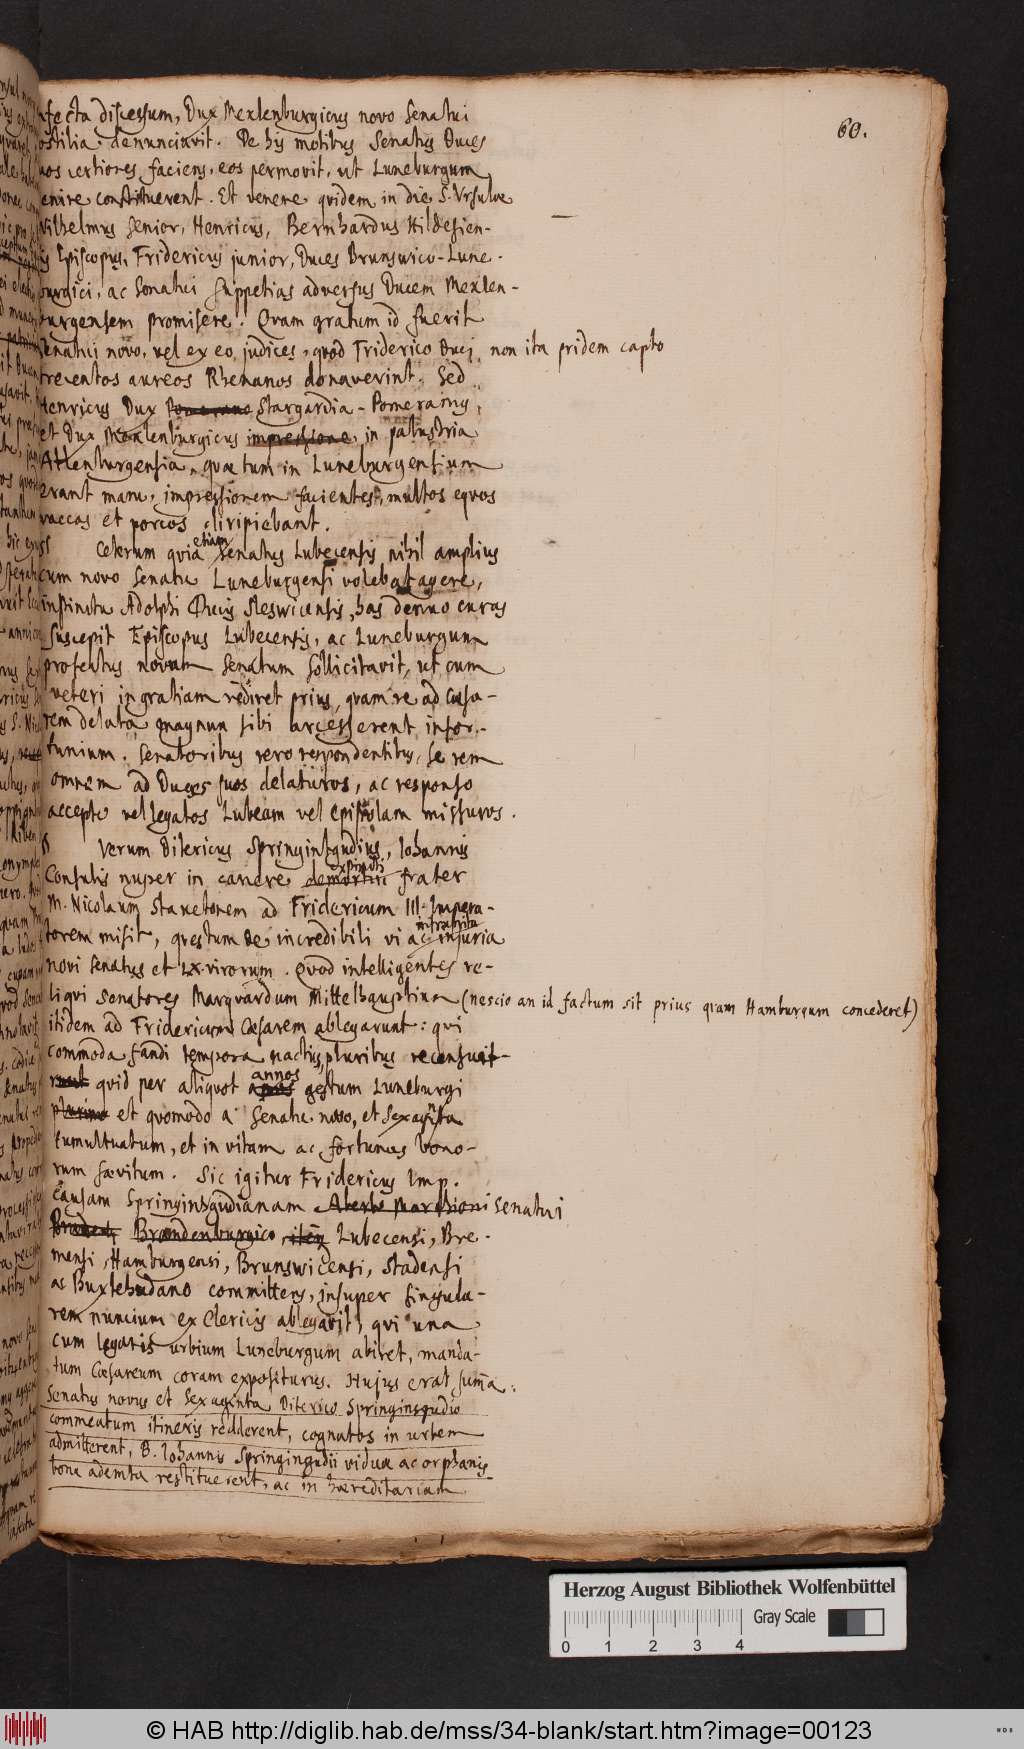 60.
fecta discessum, Dux Mexlenburgicus novo Senatui
ostilia denunciavit. De his motibus Senatus Duces
uos certiores faciens, eos permovit, ut Luneburgum
enire constituerent. Et venere quidem in die S. Ursulæ
Wilhelmus Senior, Henricus, Bernhardus Hildesien-
is Episcopus, Fridericus junior, Duces Brunswico-Lune-
burgici, ac Senatui suppetias adversus Ducem Mexlen-
burgensem promisere. Quam gratum id fuerit
Senatui novo, vel ex eo judices, quod Friderico Duci, non ita pridem capto
trecentos aureos Rhenanos donaverint. Sed
Henricus Dux Stargardia-Pomeranus,
et Dux Mexlenburgicus impressione, in palustria
Attenburgensia, quæ tum in Luneburgentium
erant manu, impressionem facientes, multos equos
vaccas et porcos diripiebant.
Ceterum quia etiam Senatus Lubecensis nihil amplius
cum novo Senatu Luneburgensi volebat agere,
instinctu Adolphi Ducis Sleswicensis, has denuo curas
suscepit Episcopus Lubecensis, ac Luneburgum
profectus novum Senatum sollicitavit, ut cum
veteri in gratiam rediret prius, quam re ad Cæsa-
rem delata magnum sibi arcesserent infor-
tunium. Senatoribus vero respondentibus, se rem
omnem ad Duces suos delaturos, ac responso
accepto vel legatos Lubecam vel epistolam missuros.
Verum Ditericus Springintgudius, Iohannis
Consulis nuper in carcere demortui frater
M. Nicolaum Stauetonem ad Fridericum III. Impera-
torem misit, questum de incredibili vi ac injuria
novi Senatus et LX-virorum. Quod intelligentes re-
liqui Senatores Marquardum Mittelhauptium (nescio an id factum sit prius quam Hamburgum concederet)
itidem ad Fridericum Cæsarem ablegarunt: qui
commoda fandi tempora nactus, pluribus recensuit
quid per aliquot annos gestum Luneburgi
et quomodo a Senatu novo, et Sexaginta
tumultuatum, et in vitam ac fortunas bono-
rum sævitum. Sic igitur Fridericus Imp.
Causam Springintgudianam Alberto Marchioni Senatui
Brandenburgico, item Lubecensi, Bre-
mensi, Hamburgensi, Brunswicensi, Stadensi
ac Buxtehudano committens, insuper singula-
rem nuncium ex Clericis ablegavit, qui una
cum legatis urbium Luneburgum abiret, manda-
tum Cæsareum coram expositurus. Hujus erat summa:
Senatus novus et Sexaginta Diterico Springinsgudio
commeatum itineris redderent, cognatos in urbem
admitterent, B. Iohannis Springingudii viduæ ac orphanis
bona ademta restituerent, ac in hæreditariam
Herzog August Bibliothek Wolfenbüttel
Gray Scale
0 1 2 3 4
© HAB http://diglib.hab.de/mss/34-blank/start.htm?image=00123